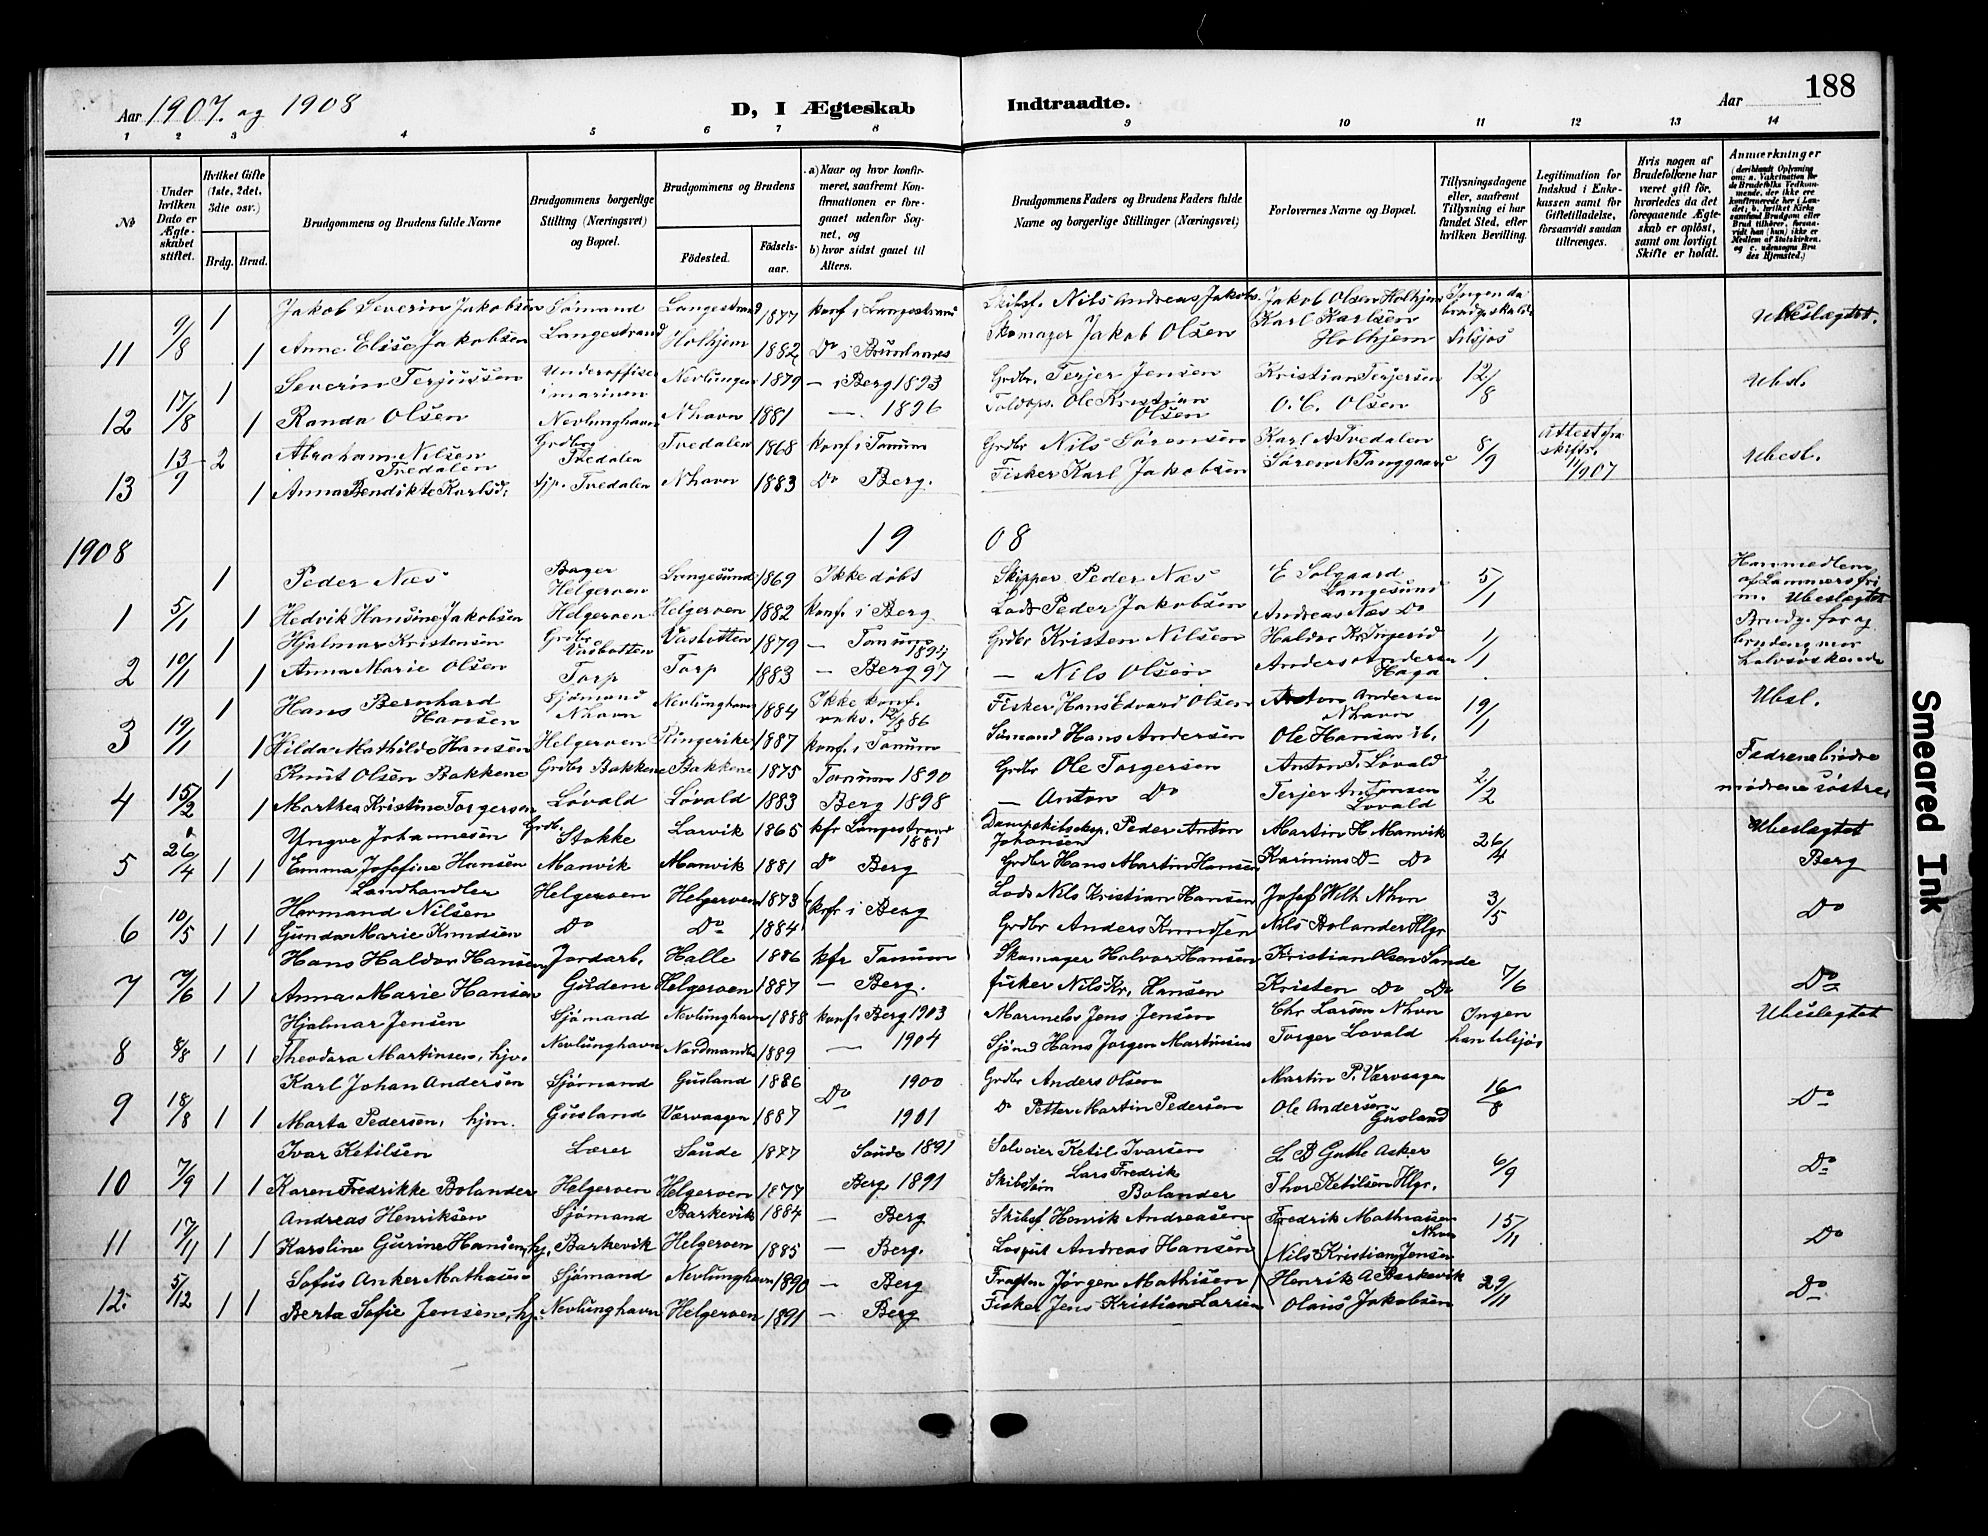 188
Aar 1907. og 1908
D, I Ægteskab Indtraadte.
Aar
1 2 3 4 5 6 7 8 9 10 11 12 13 14
No
Under hvilken Dato er Ægteskabet stiftet.
Hvilket Gifte (1ste, 2det, 3die osv.)
Brdg. Brud.
Brudgommens og Brudens fulde Navne
Brudgommens borgerlige Stilling (Næringsvei) og Bopæl.
Brudgommens og Brudens
Fødested.
Fødselsaar.
a) Naar og hvor konfirmeret, saafremt Konfirmationen er foregaaet udenfor Sognet, og
b) hvor sidst gaaet til Alters.
Brudgommens Faders og Brudens Faders fulde Navne og borgerlige Stillinger (Næringsvei)
Forlovernes Navne og Bopæl.
Tillysningsdagene eller, saafremt Tillysning ei har fundet Sted, efter hvilken Bevilling.
Legitimation for Indskud i Enkekassen samt for Giftetilladelse, forsaavidt saadan tiltrænges.
Hvis nogen af Brudefolkene har været gift før, hvorledes da det foregaaende Ægteskab er opløst, samt om lovligt Skifte er holdt.
Anmærkninger
11 9/8 1 Jakob Severin Jakobsen Sømand Langestrand 1877 konf. i Langestrand Skibsf. Nils Andreas Jakobs. Jakob Olsen Holhjem Ingen da Ubeslægtet.
1 Anne Elise Jakobsen Langestrand Holhjem 1882 Do i Brunlanes Skomager Jakob Olsen Karl Karlsen Holhjem tilsjøs
12 17/8 1 Severin Terjussen Underofficer i marinen Nevlungen 1879 — i Berg 1893 Grdbr. Terjer Jensen Kristian Terjersen 12/8 Ubsl.
1 Randa Olsen Nevlunghavn Nhavn 1881 — 1896 Toldops. Ole Kristian Olsen O. C. Olsen
13 13/9 2 Abraham Nilsen Tvedalen Grdbr. Tvedalen Tvedalen 1868 konf i Tanum Grdbr Nils Sørensen Karl A Tvedalen 8/9 Attest fra skifts. 11/9 07 Ubesl.
1 Anna Bendikte Karlsd. Tjp. Tvedalen Nhavn 1883 Do Berg. Fisker Karl Jakobsen Søren N Tanggaard
1908 1908
1 5/1 1 Peder Næs Bager Helgeroen Langesund 1869 Ikke døbt Skipper Peder Næs E Solgaard Langesund 5/1 Han medlem af Lammers fri m. Ubeslægtet
1 Hedvik Hansine Jakobsen Helgeroen Helgeroen 1882 konf. i Berg Lods Peder Jakobsen Andreas Næs Do
2 10/1 1 Hjalmar Kristensen Grdbr Vasbotten Vasbotten 1879 — Tanum 1894 Grdbr Kristen Nilsen Haldor Kr. 1/1 Brudg. far og brudens mor halvsøskende
1 Anna Marie Olsen Torp Torp 1883 — Berg 97 — Nils Olsen Anders Andersen Haga
3 19/1 1 Hans Bernhard Hansen Sjømand Nhavn Nevlunghavn 1884 Ikke konf. vaks. 12/8 86 Fisker Hans Edvard Olsen Anton Andersen Nhavn 19/1 Ubsl.
1 Hilda Mathilde Hansen Helgeroen Ringerike 1887 konf. i Tanum Sømand Hans Andersen Ole Hansen ib.
4 15/2 1 Knut Olsen Bakkene Grdbr Bakkene Bakkene 1875 Tanum 1890 Grdbr Ole Torgersen Anton T. Løvald 2/2 Fedrene brødre
1 Marthea Kristine Torgersen Løvald Løvald 1883 Berg 1898 — Anton Do Terjer Antonsen Løvald mødrene søstre
5 26/4 Yngve Johannesen Grdbr. Stokke Larvik 1865 kfr Langestrand 1881 Dampskibseksp. Peder Anton Johansen Martin H. Manvik 26/4 Ubeslægtet
1 1 Emma Josefine Hansen Manvik Manvik 1881 Do Berg Grdbr Hans Martin Hansen Karinius Do Do Berg
6 10/5 Landhandler Hermand Nilsen Helgeroen Helgeroen 1873 kfr i Berg Lods Nils Kristian Hansen Josef Wilh. Nhvn 3/5 Do
1 1 Gunda Marie Knudsen Do Do 1884 Grdbr Anders Knudsen Nils Bolander Hlgr
7 7/6 Hans Haldor Hansen Jordarb. Halle 1886 kfr Tanum Skomager Halvor Hansen Kristian Olsen Sande 7/6 Do
1 1 Anna Marie Hansen Gurdene Helgeroen 1887 — Berg. fisker Nils Kr. Hansen Kristen Do Do
8 8/8 Hjalmar Jensen Sjømand Nevlunghavn 1888 konf i Berg 1903 Jens Jensen Chr Larsen Nhvn Ingen Ubeslegtet
1 1 Theodora Martinsen, hjv. Nevlunghavn Nordmandt 1889 — 1904 Sjømd Hans Jørgen Martinsen Torger Løvald han tilsjøs
9 18/8 Karl Johan Andersen Sjømand Gusland 1886 Do 1900 Grdbr Anders Olsen Martin P. Værvaagen 16/8 Do
1 1 Marta Pedersen, hjm. Gusland Værvaagen 1887 1901 Do Petter Martin Pedersen Ole Andersen Gusland
10 7/9 Ivar Ketilsen Lærer Saude 1877 Saude 1891 Selveier Ketil Ivarsen L B Guthe Asker 6/9 Do
1 1 Karen Fredrikke Bolander Helgeroen Helgeroen 1877 Berg 1891 Lars Fredrik Bolander Thor Ketilsen Hlgr.
11 17/11 Andreas Henriksen Sjømand Barkevik 1884 — Berg Skibsf Henrik Andreasen Fredrik Mathiassen Nhvn 15/11 Do
1 1 Karoline Gurine Hansen, hj. Barkevik Helgeroen 1885 — Berg. Andreas Hansen Nils Kristian Jensen
12. 5/12 Sofus Anker Mathisen Sjømand Nevlunghavn 1890 — Berg Jørgen Mathisen Henrik A Barkevik 29/11 Do
1 1 Berta Sofie Jensen, hj. Nevlunghavn Helgeroen 1891 — Berg Fisker Jens Kristian Larsen Olaus Jakobsen
Smeared Ink